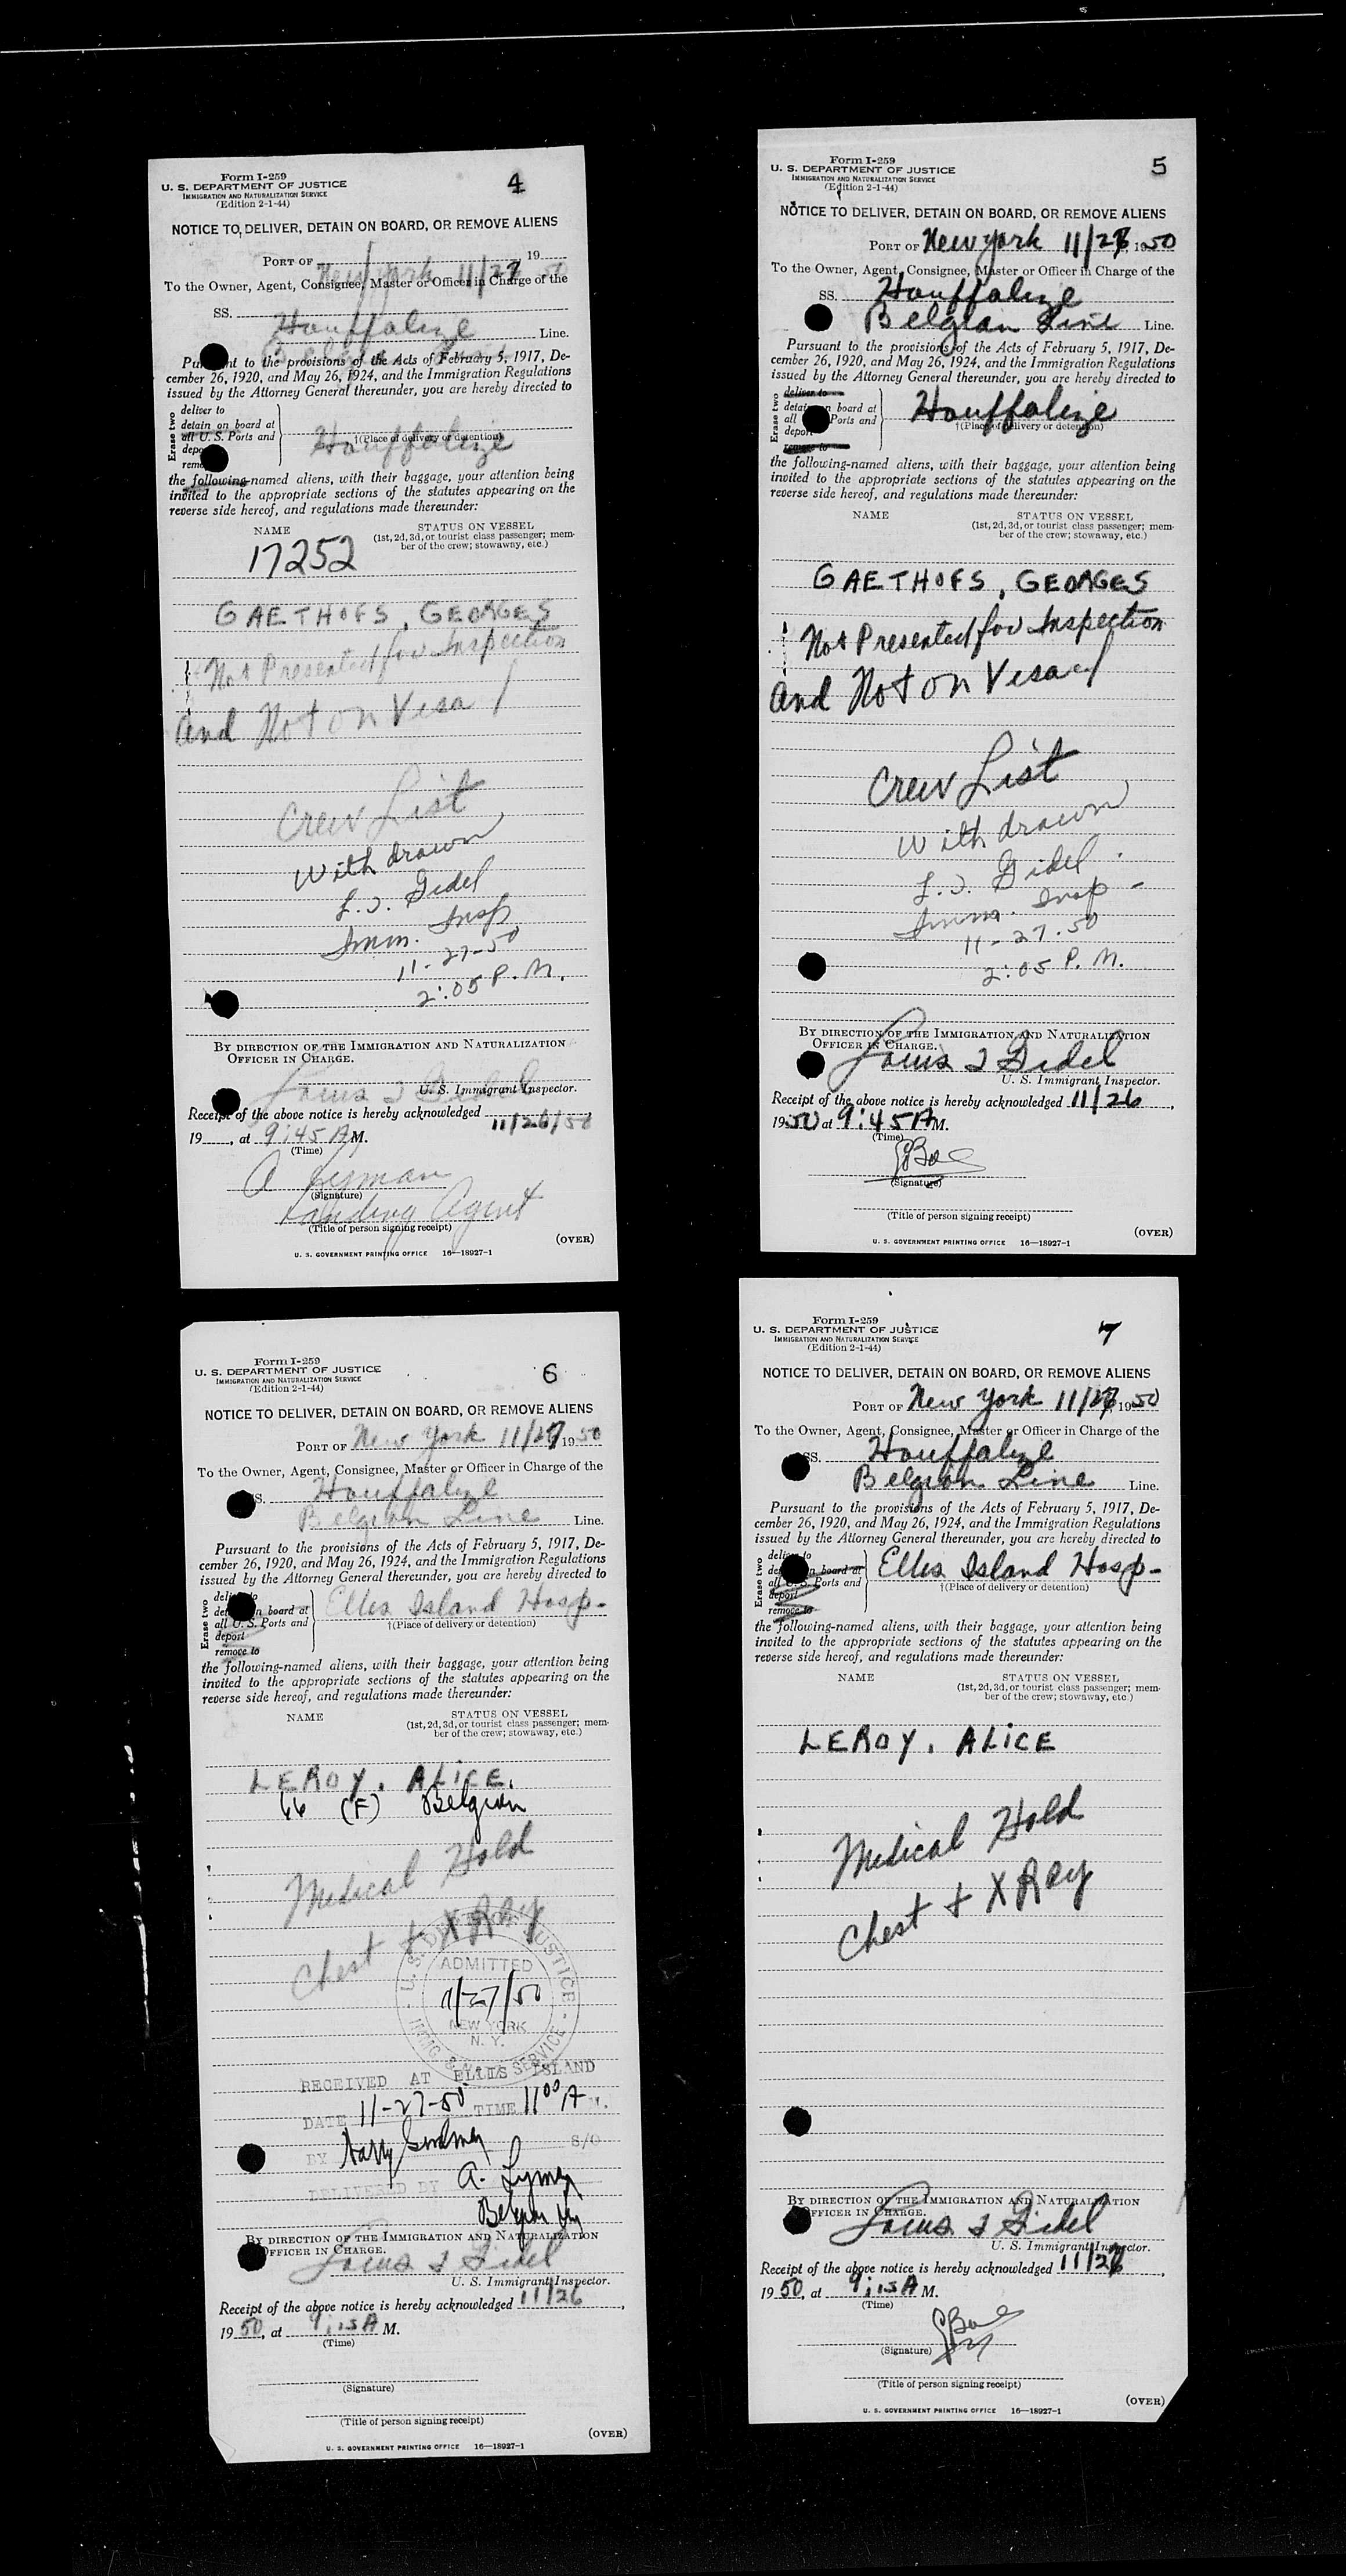 Form I-259
U. S. DEPARTMENT OF JUSTICE
IMMIGRATION AND NATURALIZATION SERVICE
(Edition 2-1-44)
4
NOTICE TO DELIVER, DETAIN ON BOARD, OR REMOVE ALIENS
PORT OF New York 11/27 1950
To the Owner, Agent, Consignee, Master or Officer in Charge of the
SS. Houffalize
Belgian Line Line.
Pursuant to the provisions of the Acts of February 5, 1917, De-
cember 26, 1920, and May 26, 1924, and the Immigration Regulations
issued by the Attorney General thereunder, you are hereby directed to
Erase two
deliver to
detain on board at
all U. S. Ports and
deport
remove to
Houffalize
†(Place of delivery or detention)
the following-named aliens, with their baggage, your attention being
invited to the appropriate sections of the statutes appearing on the
reverse side hereof, and regulations made thereunder:
NAME STATUS ON VESSEL
(1st, 2d, 3d, or tourist class passenger; mem-
ber of the crew; stowaway, etc.)
17252
GAETHOFS, GEORGES
Not Presented for Inspection
and Not on Visa
Crew List
Withdrawn
L. J. Gidel
Imm. Insp
11-27-50
2:05 P.M.
BY DIRECTION OF THE IMMIGRATION AND NATURALIZATION
OFFICER IN CHARGE.
Louis J Gidel
U. S. Immigrant Inspector.
Receipt of the above notice is hereby acknowledged 11/26/50,
19, at 9:45 A M.
(Time)
A Lyman
(Signature)
Landing Agent
(Title of person signing receipt)
(OVER)
U. S. GOVERNMENT PRINTING OFFICE 16—18927-1
Form I-259
U. S. DEPARTMENT OF JUSTICE
IMMIGRATION AND NATURALIZATION SERVICE
(Edition 2-1-44)
5
NOTICE TO DELIVER, DETAIN ON BOARD, OR REMOVE ALIENS
PORT OF New York 11/27, 1950
To the Owner, Agent, Consignee, Master or Officer in Charge of the
SS. Houffalize
Belgian Line Line.
Pursuant to the provisions of the Acts of February 5, 1917, De-
cember 26, 1920, and May 26, 1924, and the Immigration Regulations
issued by the Attorney General thereunder, you are hereby directed to
Erase two
deliver to
detain on board at
all U. S. Ports and
deport
remove to
Houffalize
†(Place of delivery or detention)
the following-named aliens, with their baggage, your attention being
invited to the appropriate sections of the statutes appearing on the
reverse side hereof, and regulations made thereunder:
NAME STATUS ON VESSEL
(1st, 2d, 3d, or tourist class passenger; mem-
ber of the crew; stowaway, etc.)
GAETHOFS, GEORGES
Not Presented for Inspection
and Not on Visa
Crew List
Withdrawn
L. J. Gidel
Imm. Insp -
11-27-50
2:05 P.M.
BY DIRECTION OF THE IMMIGRATION AND NATURALIZATION
OFFICER IN CHARGE.
Louis J Gidel
U. S. Immigrant Inspector.
Receipt of the above notice is hereby acknowledged 11/26,
1950 at 9:45 A M.
(Time)
(Signature)
(Title of person signing receipt)
(OVER)
U. S. GOVERNMENT PRINTING OFFICE 16—18927-1
Form I-259
U. S. DEPARTMENT OF JUSTICE
IMMIGRATION AND NATURALIZATION SERVICE
(Edition 2-1-44)
6
NOTICE TO DELIVER, DETAIN ON BOARD, OR REMOVE ALIENS
PORT OF New York 11/27 1950
To the Owner, Agent, Consignee, Master or Officer in Charge of the
SS. Houffalize
Belgian Line Line.
Pursuant to the provisions of the Acts of February 5, 1917, De-
cember 26, 1920, and May 26, 1924, and the Immigration Regulations
issued by the Attorney General thereunder, you are hereby directed to
Erase two
deliver to
detain on board at
all U. S. Ports and
deport
remove to
Ellis Island Hosp-
†(Place of delivery or detention)
the following-named aliens, with their baggage, your attention being
invited to the appropriate sections of the statutes appearing on the
reverse side hereof, and regulations made thereunder:
NAME STATUS ON VESSEL
(1st, 2d, 3d, or tourist class passenger; mem-
ber of the crew; stowaway, etc.)
LEROY, ALICE.
66 (F) Belgian
Medical Hold
Chest + X Ray
U. S. DEPT. OF JUSTICE
ADMITTED
11/27/50
NEW YORK
N. Y.
IMMIG. & NATZ. SERVICE
RECEIVED AT ELLIS ISLAND
DATE 11-27-50 TIME 11 00 A M.
BY Harry S/O
DELIVERED BY A. Lyman
Belgian Line
BY DIRECTION OF THE IMMIGRATION AND NATURALIZATION
OFFICER IN CHARGE.
Louis J Gidel
U. S. Immigrant Inspector.
Receipt of the above notice is hereby acknowledged 11/26,
1950, at 9:15 A M.
(Time)
(Signature)
(Title of person signing receipt)
(OVER)
U. S. GOVERNMENT PRINTING OFFICE 16—18927-1
Form I-259
U. S. DEPARTMENT OF JUSTICE
IMMIGRATION AND NATURALIZATION SERVICE
(Edition 2-1-44)
7
NOTICE TO DELIVER, DETAIN ON BOARD, OR REMOVE ALIENS
PORT OF New York 11/27, 1950
To the Owner, Agent, Consignee, Master or Officer in Charge of the
SS. Houffalize
Belgian Line Line.
Pursuant to the provisions of the Acts of February 5, 1917, De-
cember 26, 1920, and May 26, 1924, and the Immigration Regulations
issued by the Attorney General thereunder, you are hereby directed to
Erase two
deliver to
detain on board at
all U. S. Ports and
deport
remove to
Ellis Island Hosp-
†(Place of delivery or detention)
the following-named aliens, with their baggage, your attention being
invited to the appropriate sections of the statutes appearing on the
reverse side hereof, and regulations made thereunder:
NAME STATUS ON VESSEL
(1st, 2d, 3d, or tourist class passenger; mem-
ber of the crew; stowaway, etc.)
LEROY, ALICE
Medical Hold
Chest + X Ray
BY DIRECTION OF THE IMMIGRATION AND NATURALIZATION
OFFICER IN CHARGE.
Louis J Gidel
U. S. Immigrant Inspector.
Receipt of the above notice is hereby acknowledged 11/27,
1950, at 9:15 A M.
(Time)
(Signature)
(Title of person signing receipt)
(OVER)
U. S. GOVERNMENT PRINTING OFFICE 16—18927-1